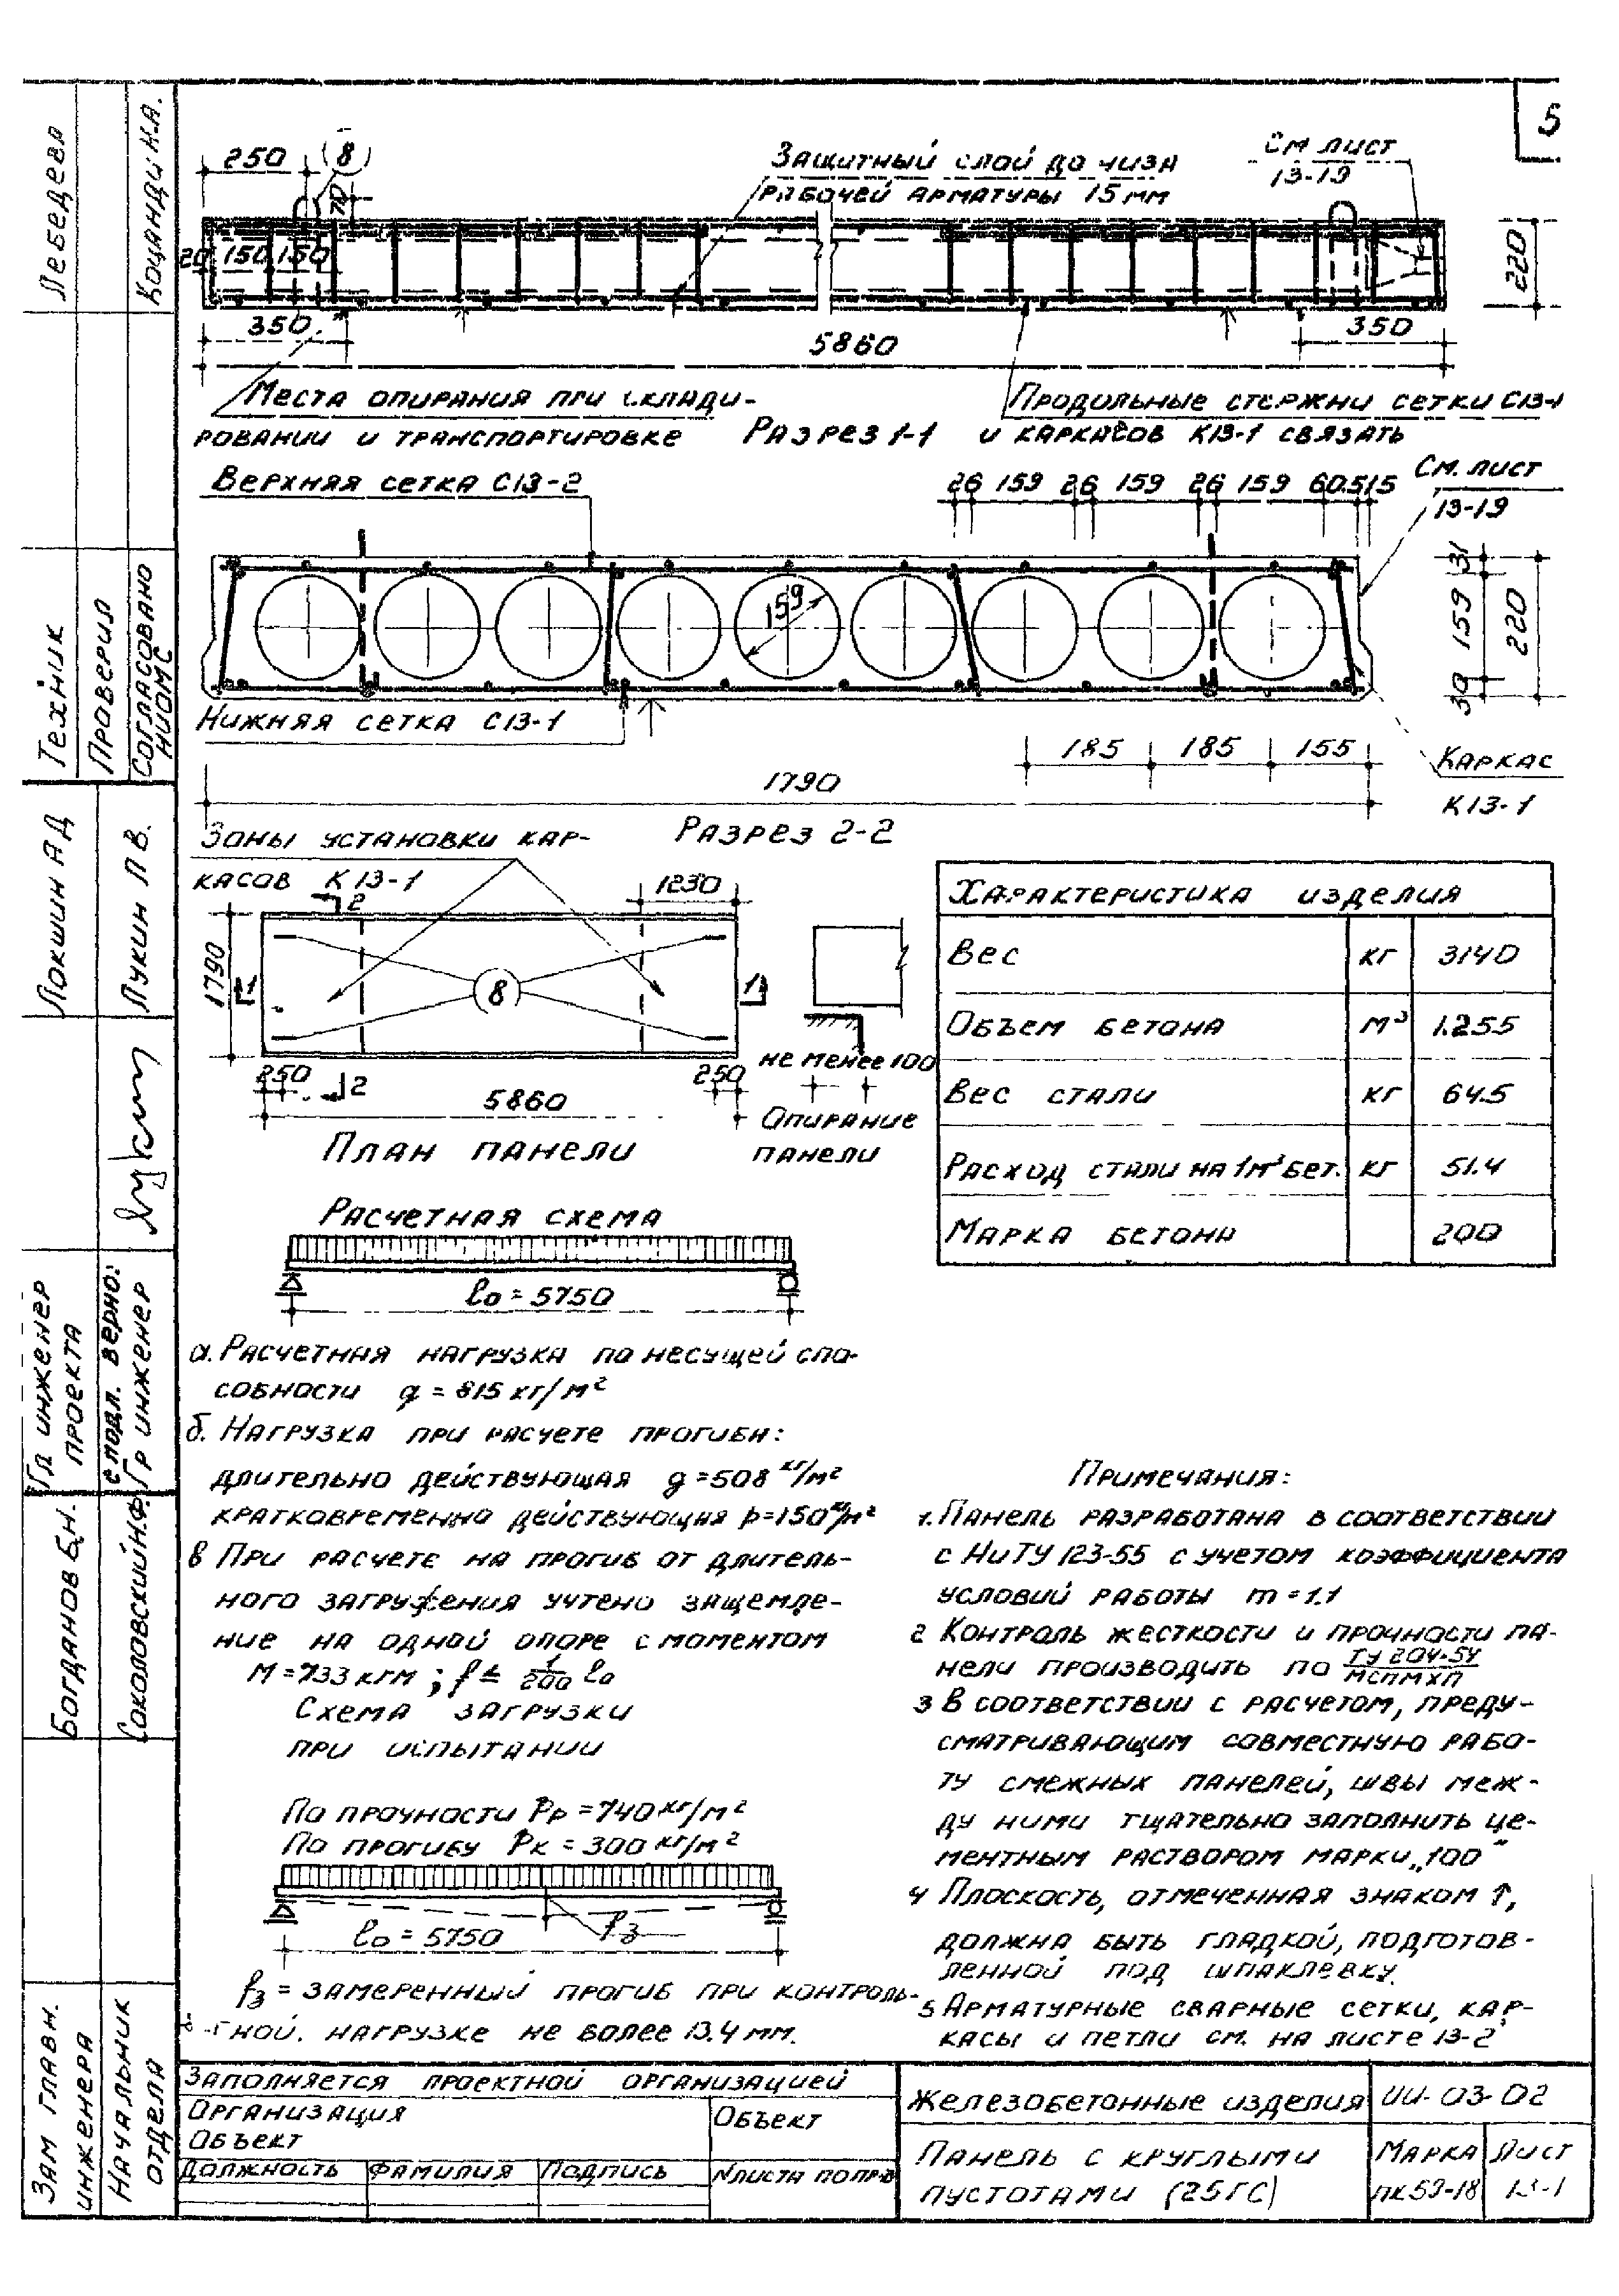 5
250
8
70
Защитный слой до низа
рабочей арматуры 15 мм
См лист
13-19
20 150 150
220
350
350
5860
Места опирания при склади-
ровании и транспортировке
Разрез 1-1
Продольные стержни сетки С13-1
и каркасов К13-1 связать
Верхняя сетка С13-2
26 159 26 159 26 159 60.5 15
См. лист
13-19
159
31
159
30
220
Нижняя сетка С13-1
185 185 155
1790
Каркас
К13-1
Разрез 2-2
Зоны установки кар-
касов К13-1
1230
2
1790
1
8
1
250
2
250
5860
План панели
не менее 100
Опирание
панели
Характеристика изделия
Вес кг 3140
Объем бетона м³ 1.255
Вес стали кг 64.5
Расход стали на 1м³ бет. кг 51.4
Марка бетона 200
Расчетная схема
ℓо = 5750
а. Расчетная нагрузка по несущей спо-
собности q = 815 кг/м²
б. Нагрузка при расчете прогиби:
длительно действующая g = 508 кг/м²
кратковременно действующая р = 150 кг/м²
в При расчете на прогиб от длитель-
ного загружения учтено защемле-
ние на одной опоре с моментом
М = 733 кгм ; f ≤ 1/200 ℓо
Схема загрузки
при испытании
По прочности Рр = 740 кг/м²
По прогибу Рк = 300 кг/м²
ℓо = 5750
fз
fз = замеренный прогиб при контроль-
ной нагрузке не более 13.4 мм.
Примечания:
1. Панель разработана в соответствии
с НиТУ 123-55 с учетом коэффициента
условий работы m = 1.1
2 Контроль жесткости и прочности па-
нели производить по ТУ 204-54/МСПМХП
3 В соответствии с расчетом, преду-
сматривающим совместную рабо-
ту смежных панелей, швы меж-
ду ними тщательно заполнить це-
ментным раствором марки „100“
4 Плоскость, отмеченная знаком ↑,
должна быть гладкой, подготов-
ленной под шпаклевку.
5 Арматурные сварные сетки, кар-
касы и петли см. на листе 13-2
Заполняется проектной организацией
Организация
Объект
Объект
Должность Фамилия Подпись
Железобетонные изделия
ИИ-03-02
Панель с круглыми
пустотами (25ГС)
Марка
ПК59-18
Лист
13-1
Лебедева
Коцанди Н.А.
Техник
Проверил
Согласовано
НИОМС
Локшин А Д
Лукин Л В.
Гл инженер
проекта
с подл. верно:
Гр инженер
Богданов Б.Н.
Соколовский Н.Ф.
Зам главн.
инженера
Начальник
отдела